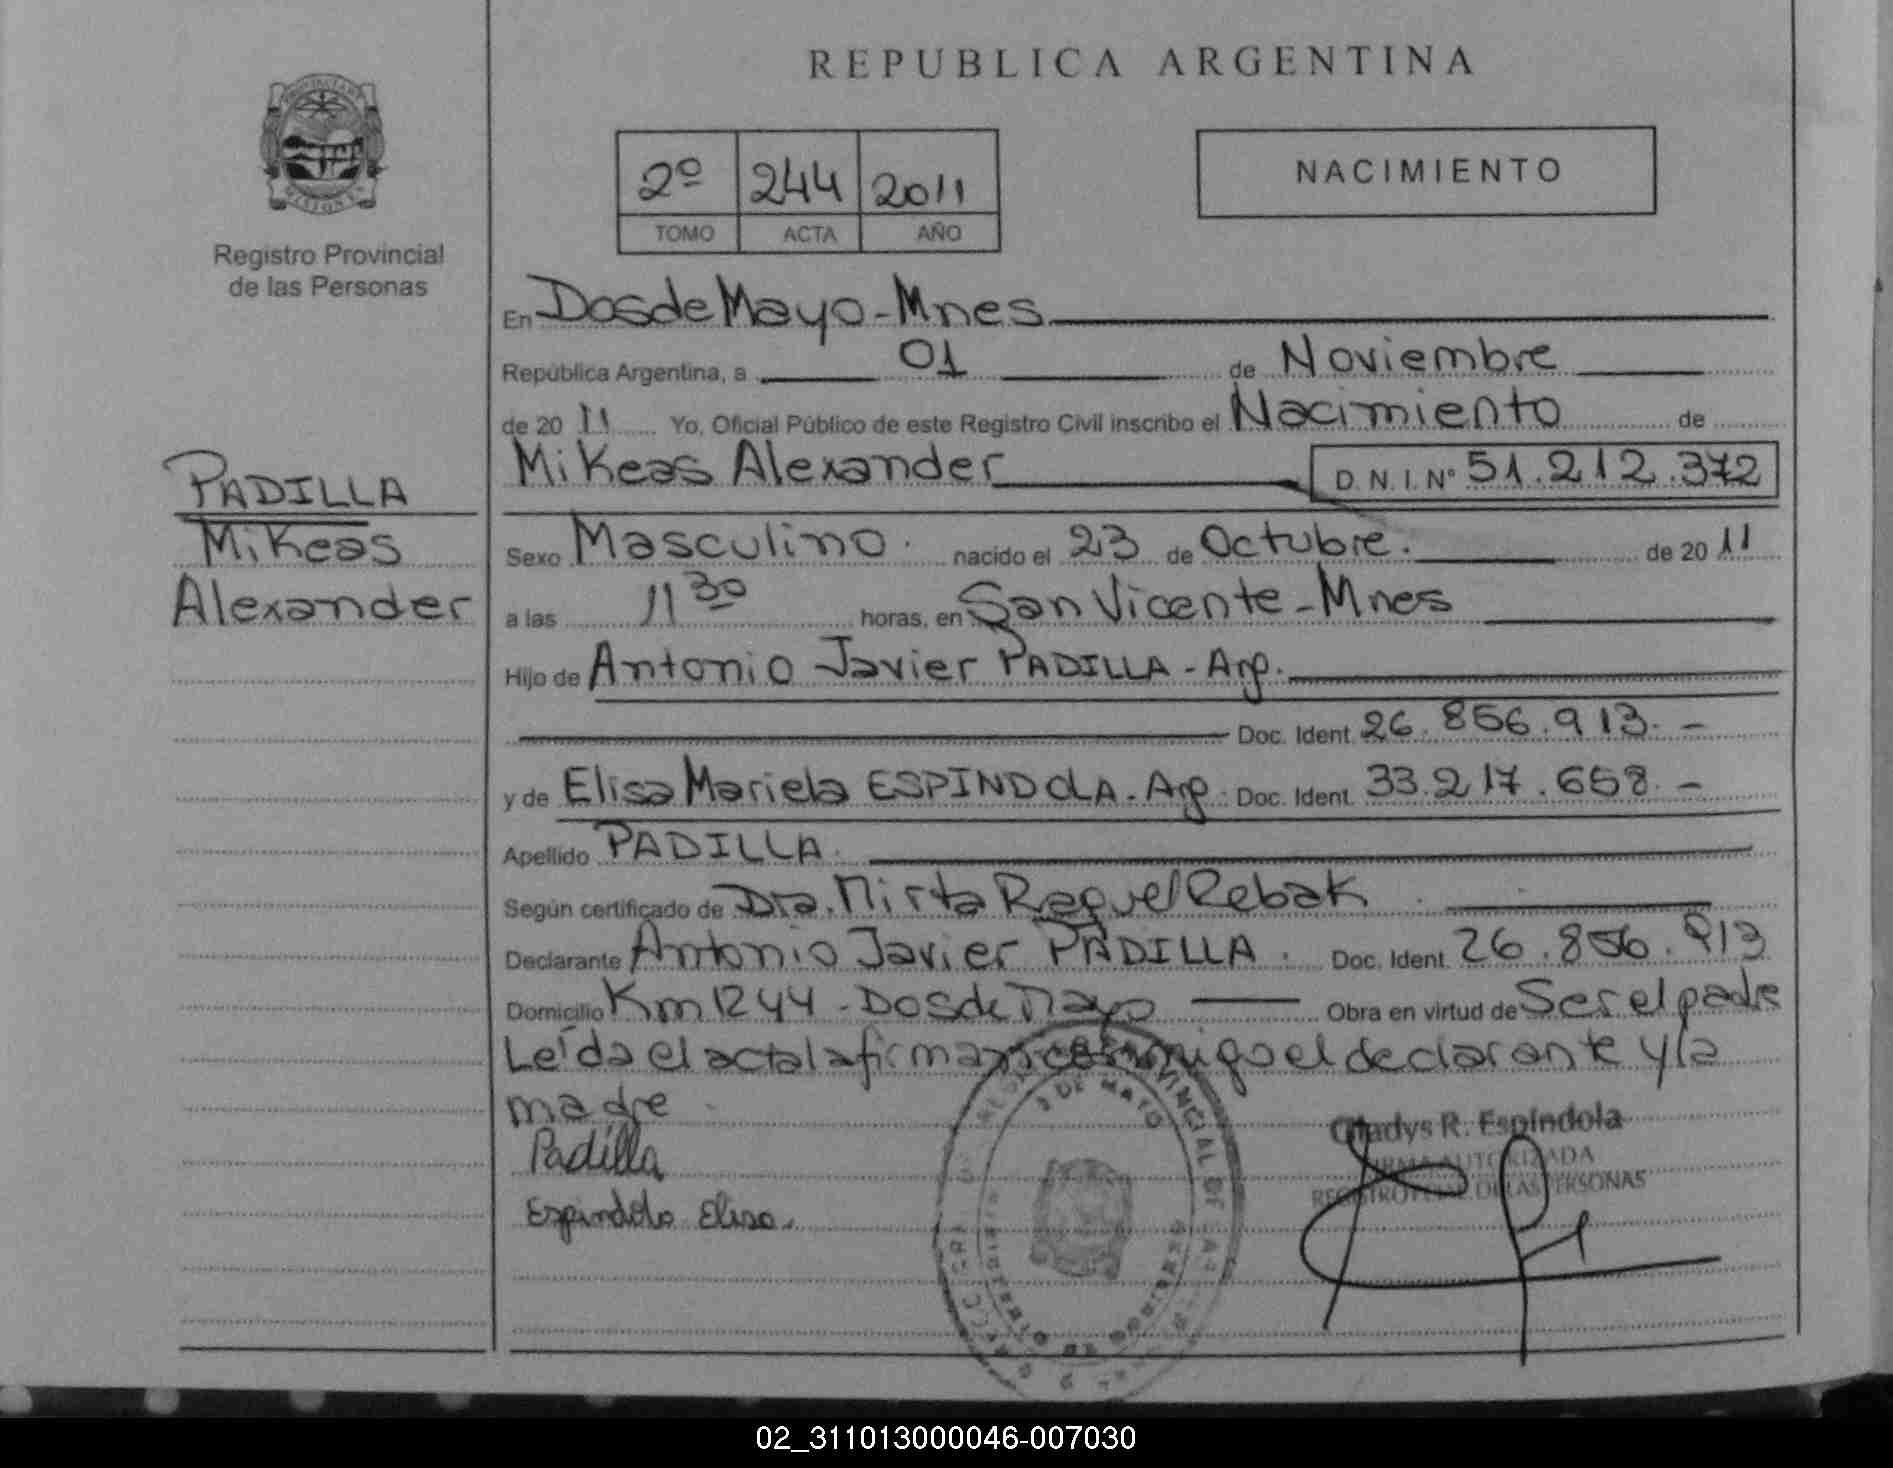 REPUBLICA ARGENTINA
PROVINCIA DE MISIONES
Registro Provincial
de las Personas
2º 244 2011
TOMO ACTA AÑO
NACIMIENTO
En Dos de Mayo - Mnes
República Argentina, a 01 de Noviembre
de 2011 Yo, Oficial Público de este Registro Civil inscribo el Nacimiento de
Mikeas Alexander D.N.I. Nº 51.212.372
PADILLA
Mikeas
Alexander
Sexo Masculino. nacido el 23 de Octubre. de 2011
a las 11 30 horas, en San Vicente - Mnes
Hijo de Antonio Javier PADILLA - Arg.
Doc. Ident. 26.856.913. -
y de Elisa Mariela ESPINDOLA. Arg. Doc. Ident. 33.217.658. -
Apellido PADILLA.
Según certificado de Dra. Mirta Raquel Rebak
Declarante Antonio Javier PADILLA. Doc. Ident. 26.856.913
Domicilio Km 1244 - Dos de Mayo Obra en virtud de Ser el padre
Leída el acta la firman conmigo el declarante y la
madre.
Padilla
Espindola Elisa.
Gladys R. Espíndola
FIRMA AUTORIZADA
REGISTRO PCIAL. DE LAS PERSONAS
2 DE MAYO
02_311013000046-007030